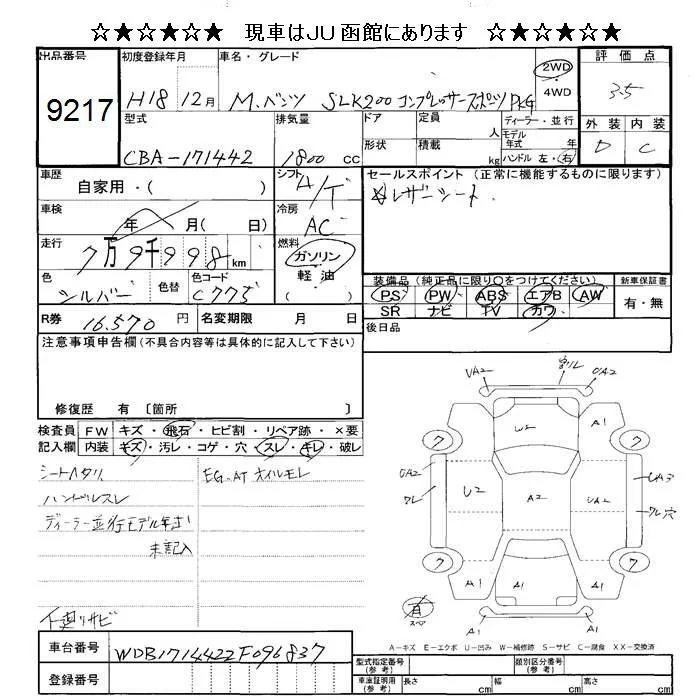 ☆★☆★☆★ 現車はJU函館にあります ☆★☆★☆★
出品番号 初度登録年月 車名・グレード 2WD 4WD 評価点
9217 H18 12月 M.ベンツ SLK200 コンプレッサースポーツPKG 3.5
型式 排気量 ドア 定員 人 ディーラー・並行 外装 内装
モデル年式 年
CBA-171442 1800 cc 形状 積載 kg ハンドル 左・右 D C
車歴 自家用・( ) シフト A/T セールスポイント (正常に機能するものに限ります)
本レザーシート.
車検 年 月( 日) 冷房 AC
走行 7万9千998km 燃料 ガソリン 軽油 ( )
色 シルバー 色替 色コード C775
装備品(純正品に限り○をつけてください) 新車保証書
PS PW ABS エアB AW 有・無
SR ナビ TV カワ
R券 16.570 円 名変期限 月 日 後日品
注意事項申告欄(不具合内容等は具体的に記入して下さい)
修復歴 有 〔箇所
検査員記入欄 FW キズ・飛石・ヒビ割・リペア跡・×要
内装 キズ・汚レ・コゲ・穴・スレ・キレ・破レ
シートヘタリ EG-ATオイルモレ
ハンドルスレ
ディーラー並行モデル年式
未記入
下廻リサビ
UA2 割レ UA2
U2 A1
ワ ワ
UA2 ワレ U2 A2 UA2 UA3
ワレ 穴
ワ ワ
A1 A1 A1
有 スペア A1 A1
A-キズ E-エクボ U-凹み W-補修跡 S-サビ C-腐食 XX-交換済
車台番号 WDB1714422F096837
登録番号
型式指定番号(参考) 類別区分番号(参考)
車庫証明用(参考) 長さ cm 幅 cm 高さ cm